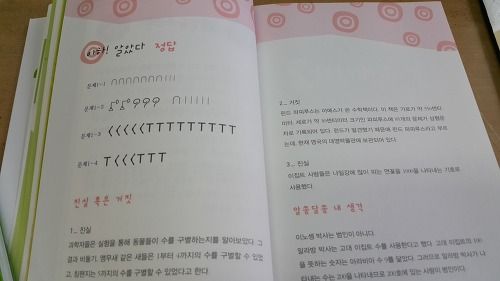 아하! 알았다 정답
문제1-1 ∩∩∩∩∩∩∩ | | |
문제1-2
문제1-3 <<<<<TTTTTTTTT
문제1-4 T<<<TTT
진실 혹은 거짓
1... 진실
과학자들은 실험을 통해 동물들이 수를 구별하는지를 알아보았다. 그
결과 비둘기, 앵무새 같은 새들은 1부터 4까지의 수를 구별할 수 있었
고, 침팬지는 5까지의 수를 구별할 수 있었다고 한다.
2... 거짓
린드 파피루스는 아메스가 쓴 수학책이다. 이 책은 가로가 약
미터, 세로가 약 센티미터 크기인 파피루스에 개의 문제가 상형문
자로 기록되어 있다. 린드가 발견했기 때문에 린드 파피루스라고 부르
는데, 현재 영국의 대영박물관에 보관되어 있다.
3... 진실
이집트 사람들은 나일강에 많이 피는 연꽃을 1000을 나타내는 기호로
사용했다.
알쏭달쏭 내 생각
이노셈 박사는 범인이 아니다.
일라밤 박사는 고대 이집트 수를 사용한다고 했다. 고대 이집트의 100
을 뜻하는 숫자는 아라비아 수 9를 닮았다. 그러므로 일라밤 박사가 나
타내는 수는 200을 나타내므로 200호에 있는 사람이 범인이다.